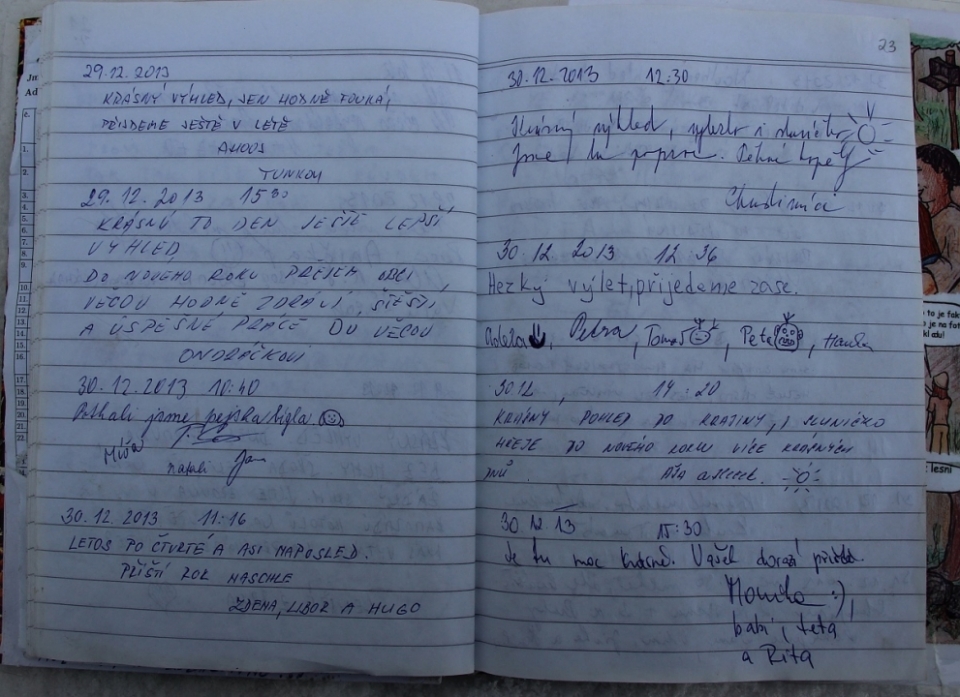 29.12. 2013
KRÁSNÝ VÝHLED, JEN HODNĚ FOUKÁ,
PŘIJDEME JEŠTĚ V LÉTĚ
AHOJ
29.12. 2013 15 30
KRÁSNÝ TO DEN JEŠTĚ LEPŠÍ
VÝHLED,
DO NOVÉHO ROKU PŘEJEM
HODNĚ ZDRAVÍ, ŠTĚSTÍ,
A ÚSPĚŠNÉ PRÁCE
ONDRÁČKOVI
30.12.2013 10:40
Potkali jsme pejska bígla
Míša
Natali Jan
30.12. 2013 11:16
LETOS PO ČTVRTÉ A ASI NAPOSLED.
PŘÍŠTÍ ROK NASCHLE
ZDENA, LIBOR A HUGO
23
30.12.2013 12:30
Krásný výhled, vylezlo i sluníčko
Jsme tu poprvé.
Chudimáci
30.12. 2013 12:36
Hezký výlet, přijedeme zase.
Adéla, Petra, Tomáš, Peťa, Hanka
30.12. 14:20
KRÁSNÝ POHLED DO KRAJINY, I SLUNÍČKO
HŘEJE DO NOVÉHO ROKU VÍCE KRÁSNÝCH
DNŮ.
30.12.13 15:30
Je tu moc krásně. Vašek dorazí příště.
Monika :),
babi, teta
a Rita
to je fak
je na fot
lesní
Jm
Ad
č.
1.
2.
3.
4.
5.
6.
7.
8.
9.
10
11
12
13
14
15
16
17
18
19
20
21
22